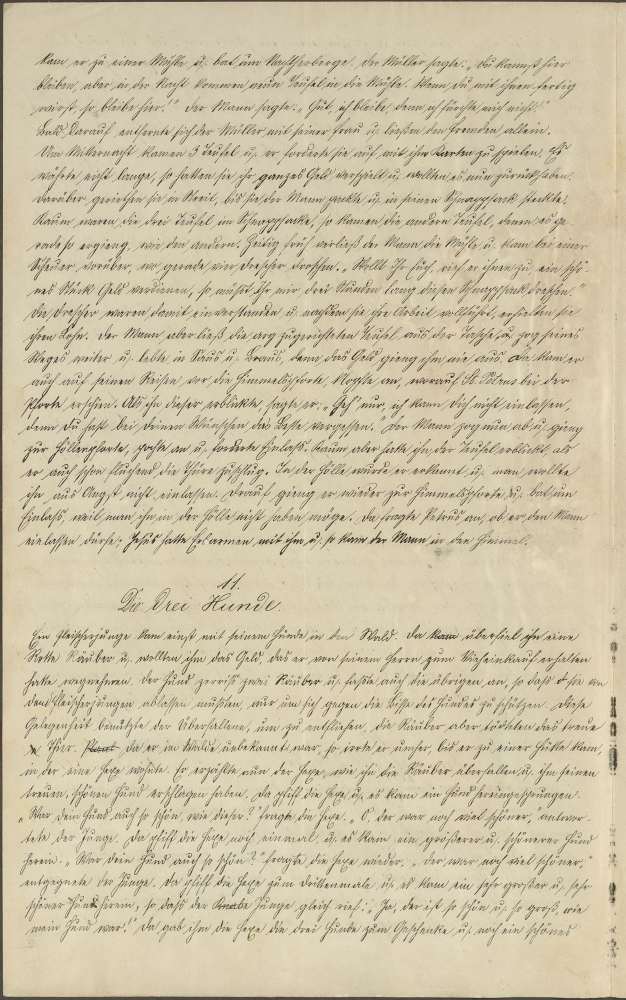 kam er zu einer Mühle u. bat um Nachtherberge. Der Müller sagte: „Du kannst hier
bleiben, aber in der Nacht kommen neun Teufel in die Mühle. Wenn du mit ihnen fertig
wirst, so bleibe hier!" Der Mann sagte: „Gut, ich bleibe, denn ich fürchte mich nicht."
Bald darauf entfernte sich der Müller mit seiner Frau u. ließen den Fremden allein.
Um Mitternacht kamen 3 Teufel u. er forderte sie auf mit ihm Karten zu spielen. Es
währte nicht lange, so hatten sie ihr ganzes Geld verspielt u. wollten es nun zurückhaben.
Darüber gerieten sie in Streit, bis sie der Mann packte u. in seinen Schnappsack steckte.
Kaum waren die drei Teufel im Schnappsacke, so kamen die andern Teufel, denen es ge-
rade so ergieng, wie den andern. Zeitig früh verließ der Mann die Mühle u. kam bei einer
Scheuer vorüber, wo gerade vier Drescher droschen. „Wollt Ihr Euch, rief er ihnen zu, ein schö-
nes Stück Geld verdienen, so müsst Ihr mir drei Stunden lang diesen Schnappsack dreschen."
Die Drescher waren damit einverstanden u. nachdem sie ihre Arbeit vollführt, erhielten sie
ihren Lohn. Der Mann aber ließ die arg zugerichteten Teufel aus der Tasche, u. zog seines
Weges weiter u. lebte in Saus u. Braus, denn das Geld gieng ihm nie aus. Da kam er
auch auf seinen Reisen vor die Himmelspforte, klopfte an, worauf St. Petrus bei der
Pforte erschien. Als ihn dieser erblickte, sagte er: „Geh' nur, ich kann dich nicht einlassen,
denn Du hast bei deinen Wünschen das Beste vergessen." Der Mann zog nun ab u. gieng
zur Höllenpforte, pochte an u. forderte Einlass. Kaum aber hatte ihn der Teufel erblickt, als
er auch schon fluchend die Thüre zuschlug. In der Hölle wurde er erkannt u. man wollte
ihn aus Angst nicht einlassen. Darauf gieng er wieder zur Himmelspforte u. bat um
Einlass, weil man ihn in der Hölle nicht haben möge. Da fragte Petrus an, ob er den Mann
einlassen dürfe; Jesus hatte Erbarmen mit ihm u. so kam der Mann in den Himmel.
11.
Die drei Hunde.
Ein Fleischerjunge kam einst mit seinem Hunde in den Wald. Da kam überfiel ihn eine
Rotte Räuber u. wollten ihm das Geld, das er von seinem Herrn zum Vieheinkauf erhalten
hatte wegnehmen. Der Hund zerriß zwei Räuber u. fasste auch die übrigen an, so dass sie von
den Fleischerjungen ablassen mussten, nur um sich gegen die Bisse des Hundes zu schützen. Diese
Gelegenheit benützte der Überfallene, um zu entfliehen, die Räuber aber tödteten das treue
Thier. Da er im Walde unbekannt war, so irrte er umher, bis er zu einer Hütte kam,
in der eine Hexe wohnte. Er erzählte nun der Hexe, wie ihn die Räuber überfallen u. ihm seinen
treuen, schönen Hund erschlagen haben. Da pfiff die Hexe u. es kam ein Hund hereingesprungen.
„War dein Hund auch so schön, wie dieser?" fragte die Hexe. „O, der war noch viel schöner, antwor-
tete der Junge. Da pfiff die Hexe noch einmal u. es kam ein größerer u. schönerer Hund
herein. „War dein Hund auch so schön?" fragte die Hexe wieder. „Der war noch viel schöner,"
entgegnete der Junge. Da pfiff die Hexe zum drittenmale u. es kam ein sehr großer u. sehr
schöner Hund herein, so dass der Knabe Junge gleich rief: „Ja, der ist so schön u. so groß, wie
mein Hund war!" Da gab ihm die Hexe die drei Hunde zum Geschenke u. noch ein schönes